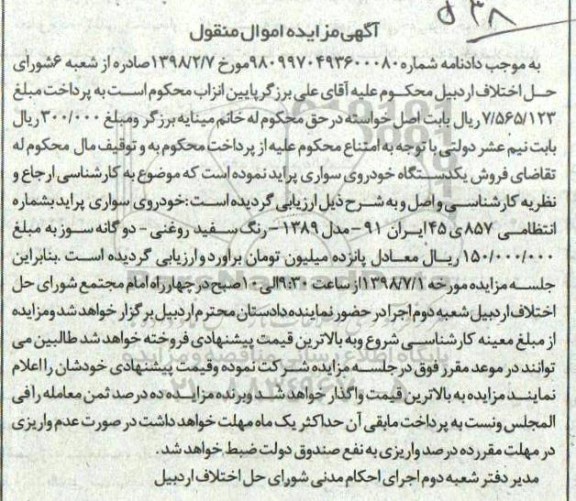 ۳۸ د
آگهی مزایده اموال منقول
به موجب دادنامه شماره ۹۸۰۹۹۷۰۴۹۳۶۰۰۰۸۰ مورخ ۱۳۹۸/۲/۷ صادره از شعبه ۶ شورای
حل اختلاف اردبیل محکوم علیه آقای علی برزگر پایین انزاب محکوم است به پرداخت مبلغ
۷/۵۶۵/۱۲۳ ریال بابت اصل خواسته در حق محکوم له خانم مینا یه برزگر و مبلغ ۳۰۰/۰۰۰ ریال
بابت نیم عشر دولتی با توجه به امتناع محکوم علیه از پرداخت محکوم به و توقیف مال محکوم له
تقاضای فروش یکدستگاه خودروی سواری پراید نموده است که موضوع به کارشناسی ارجاع و
نظریه کارشناسی واصل و به شرح ذیل ارزیابی گردیده است: خودروی سواری پراید بشماره
انتظامی ۸۵۷ ی ۴۵ ایران ۹۱ - مدل ۱۳۸۹ - رنگ سفید روغنی - دو گانه سوز به مبلغ
۱۵۰/۰۰۰/۰۰۰ ریال معادل پانزده میلیون تومان براورد و ارزیابی گردیده است. بنابراین
جلسه مزایده مورخه ۱۳۹۸/۷/۱ از ساعت ۹:۳۰ الی ۱۰ صبح در چهارراه امام مجتمع شورای حل
اختلاف اردبیل شعبه دوم اجرا در حضور نماینده دادستان محترم اردبیل برگزار خواهد شد و مزایده
از مبلغ معینه کارشناسی شروع و به بالاترین قیمت پیشنهادی فروخته خواهد شد طالبین می
توانند در موعد مقرر فوق در جلسه مزایده شرکت نموده و قیمت پیشنهادی خودشان را اعلام
نمایند مزایده به بالاترین قیمت واگذار خواهد شد و برنده مزایده ده درصد ثمن معامله را فی
المجلس ونست به پرداخت مابقی آن حداکثر یک ماه مهلت خواهد داشت در صورت عدم واریزی
در مهلت مقرر ده درصد واریزی به نفع صندوق دولت ضبط خواهد شد.
مدیر دفتر شعبه دوم اجرای احکام مدنی شورای حل اختلاف اردبیل